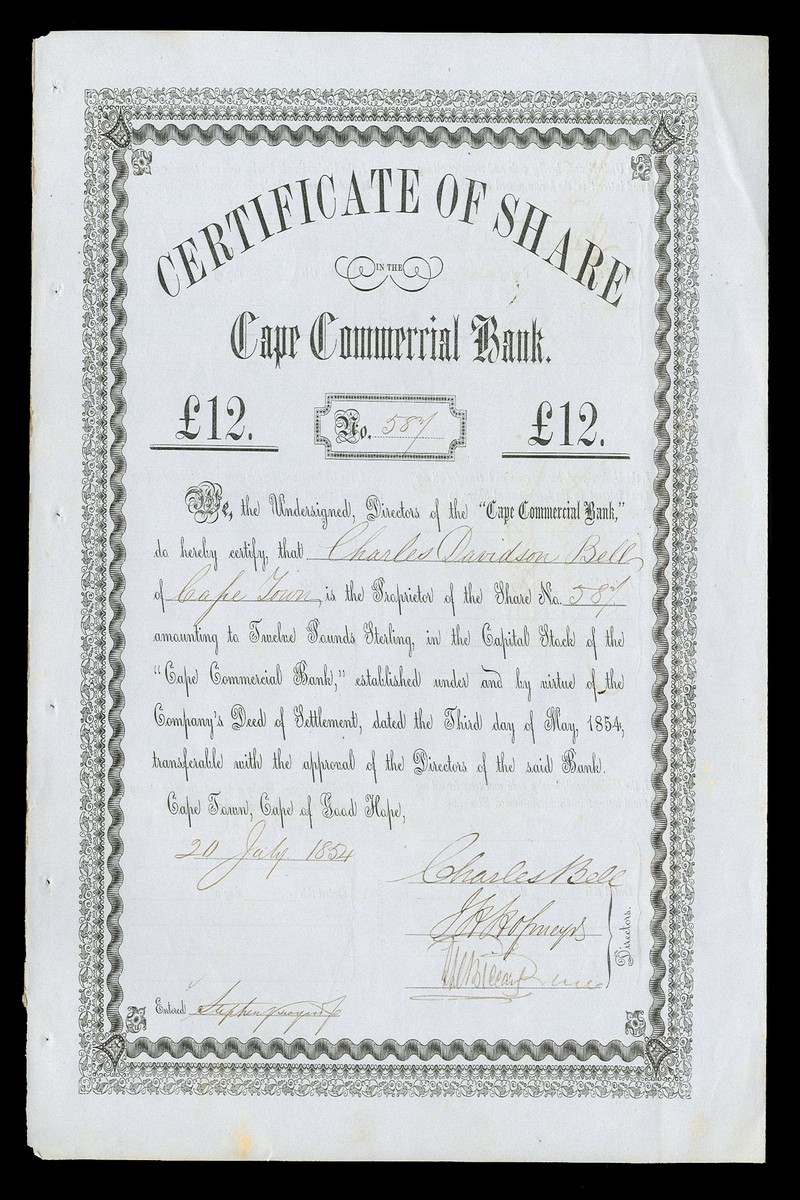 CERTIFICATE OF SHARE
IN THE
Cape Commercial Bank.
£12. No. 587 £12.
We, the Undersigned, Directors of the "Cape Commercial Bank,"
do hereby certify, that Charles Davidson Bell
of Cape Town, is the Proprietor of the Share No. 587
amounting to Twelve Pounds Sterling, in the Capital Stock of the
"Cape Commercial Bank," established under and by virtue of the
Company's Deed of Settlement, dated the Third day of May, 1854,
transferable with the approval of the Directors of the said Bank.
Cape Town, Cape of Good Hope,
20 July 1854
Charles Bell
J H Hofmeyr
Directors.
Entered Stephen